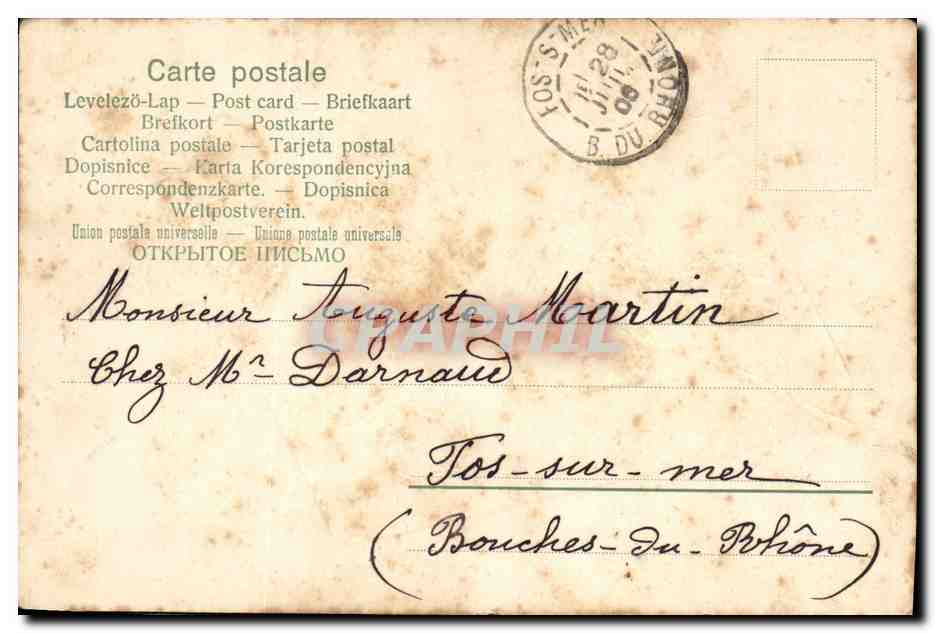 Carte postale
Levelezö-Lap — Post card — Briefkaart
Brefkort — Postkarte
Cartolina postale — Tarjeta postal
Dopisnice — Karta Korespondencyjna
Correspondenzkarte. — Dopisnica
Weltpostverein.
Union postale universelle — Unione postale universale
ОТКРЫТОЕ ПИСЬМО
FOS-S-MER
28
JUIL
06
B. DU RHÔNE
Monsieur Auguste Martin
Chez Mr Darnaud
Fos-sur-mer
(Bouches-du-Rhône)
CPAPHIL